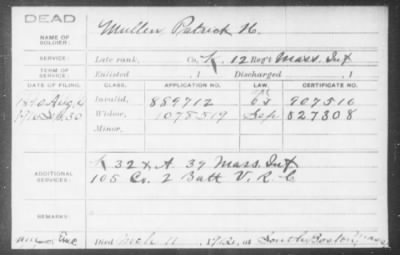 DEAD
NAME OF SOLDIER: Mullen Patrick H.
SERVICE: Late rank, Co. K, 12 Reg't Mass. Inf
TERM OF SERVICE: Enlisted , 1 Discharged , 1
DATE OF FILING. CLASS. APPLICATION NO. LAW. CERTIFICATE NO.
1890 Aug. 4 Invalid, 889712 907516
Widow, 1078519 827808
Minor,
ADDITIONAL SERVICES: K 32 & A. 39 Mass. Inf
105 Co. 2 Batt V. R. C
REMARKS:
Died Mch 11, 191 at South Boston, Mass